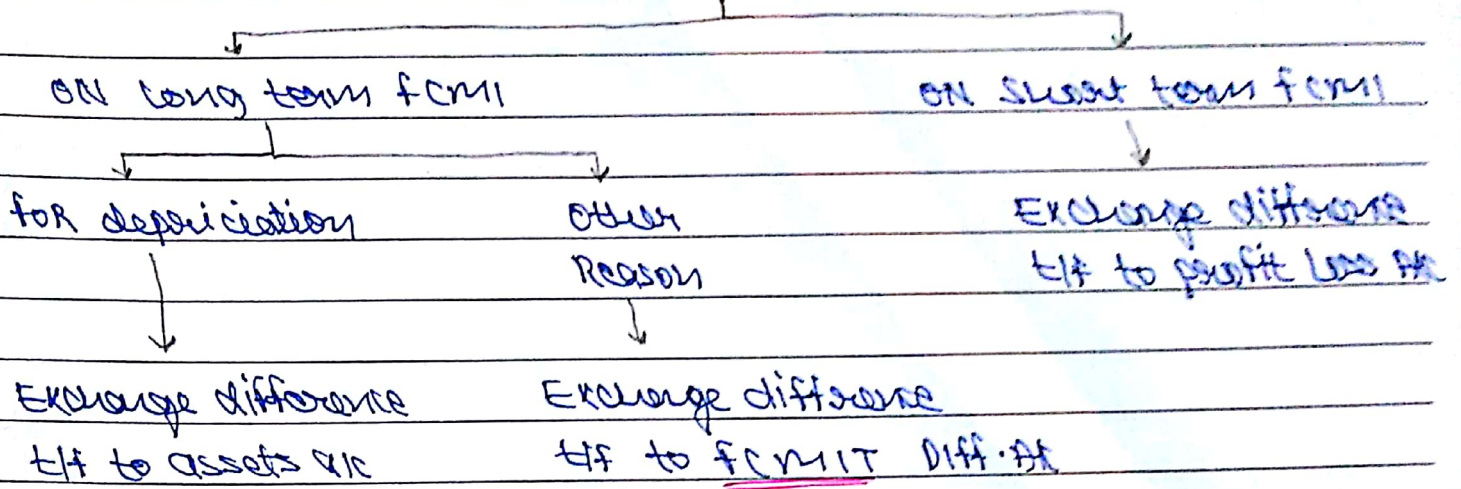 ON Long term fCMI
ON Short term fCMI
foR depriciation
Other
Reason
Exchange difference
t/f to profit Loss A/c
Exchange difference
t/f to assets a/c
Exchange difference
t/f to fCMIT Diff. A/c